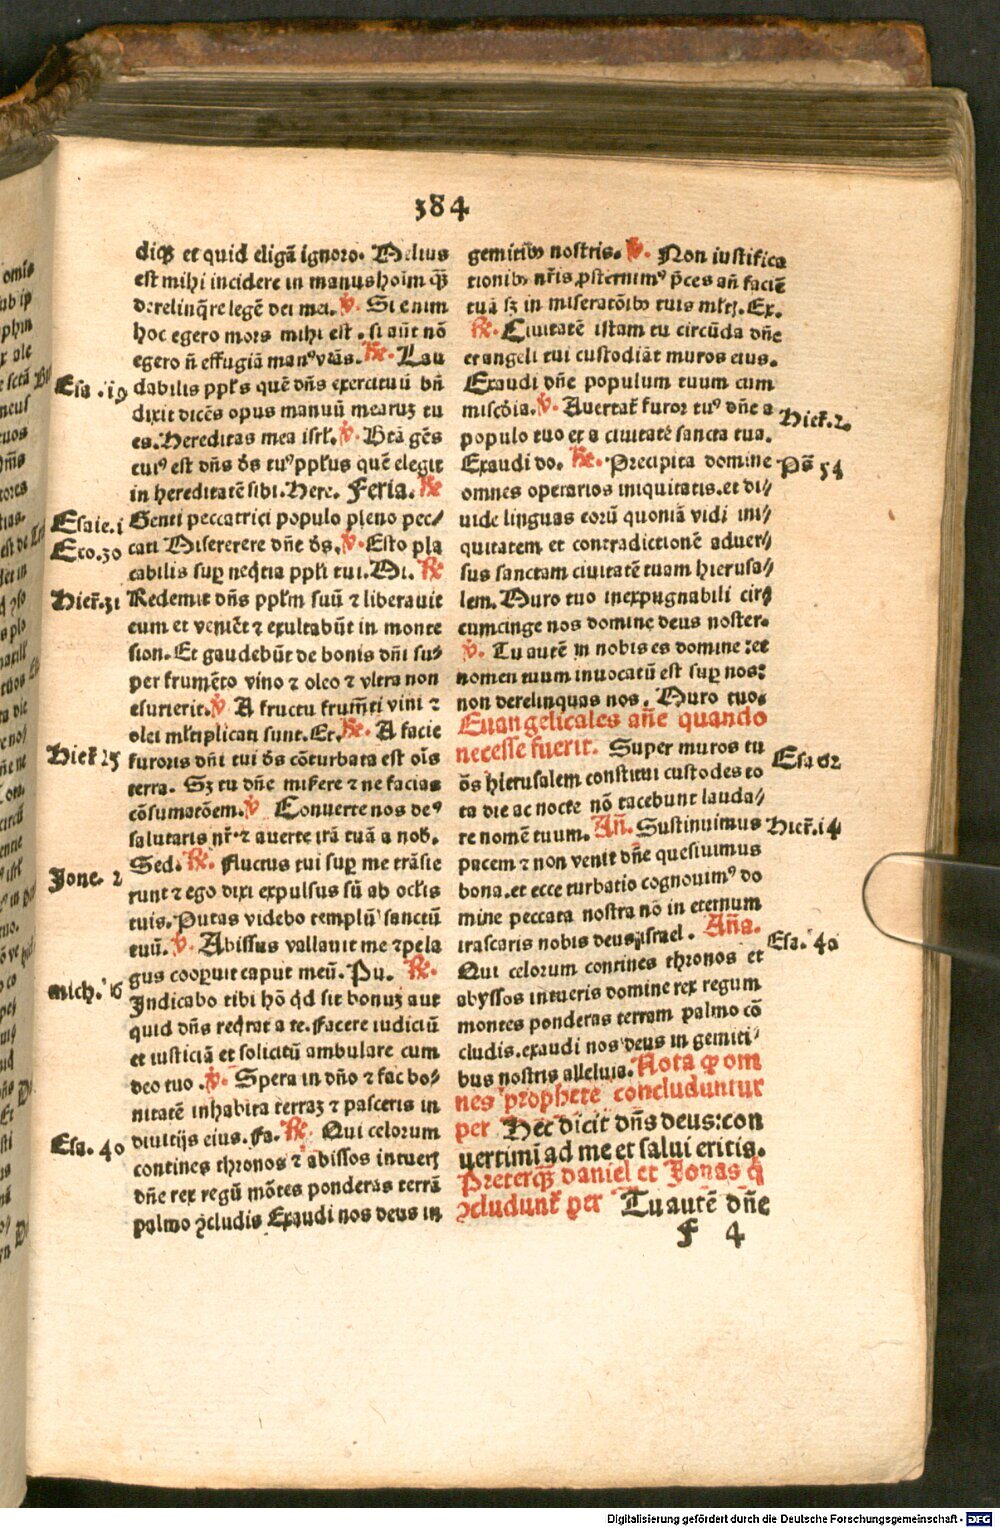 384
diqꝫ et quid eligā ignoro. Melius
est mihi incidere in manus hoīm qꝫ̄
derelinq̄re legē dei mei. ℣. Si enim
hoc egero mors mihi est. si aūt nō
egero n̄ effugiā manꝰ vr̄as. ℟. Lau
Esa. 19
dabilis ppl̄s quē dn̄s exercituū bn̄
dixit dicēs opus manuū mearuꝫ tu
es. Hereditas mea isrl̄. ℣. Btā gēs
cuiꝰ est dn̄s ds̄ tuꝰ ppl̄us quē elegit
in hereditatē sibi. Here. Feria. ℟
Esaie. i
Genti peccatrici populo pleno pec⸗
Exo. 30
cati Misererere dn̄e ds̄. ℣. Esto pla
cabilis sup neq̄tia ppl̄i tui. Mi. ℟
Hier̄. 31
Redemit dn̄s ppl̄m suū ⁊ liberauit
eum et veniēt ⁊ exultabūt in monte
sion. Et gaudebūt de bonis dn̄i su⸗
per frumēto vino ⁊ oleo ⁊ vltra non
esurierit. ℣ A fructu frum̄ti vini ⁊
olei ml̄tiplicati sunt. Et. ℟. A facie
Hier̄ 25
furoris dn̄i tui ds̄ cōturbata est oīs
terra. Sꝫ tu dn̄e misere ⁊ ne facias
cōsumatōem. ℣ Conuerte nos deꝰ
salutaris nr̄ ⁊ auerte irā tuā a nob̄.
Sed. ℟. Fluctus tui sup me trāsie
Jone. 2
runt ⁊ ego dixi expulsus sū ab ocl̄is
tuis. Putas videbo templū sanctū
tuū. ℣. Abissus vallauit me ⁊ pela
gus cooꝑuit caput meū. Pu. ℟.
mich. 6
Indicabo tibi hō qd̄ sit bonuꝫ aut
quid dn̄s req̄rat a te. facere iudiciū
et iusticiā et solicitū ambulare cum
deo tuo. ℣. Spera in dn̄o ⁊ fac bo⸗
nitatē inhabita terraꝫ ⁊ pasceris in
Esa. 40
diuitijs eius. fa. ℟. Qui celorum
contines thronos ⁊ abissos intuerꝭ
dn̄e rex regū mōtes ponderas terrā
palmo ꝯcludis Exaudi nos deus in
gemitibꝰ nostris. ℣. Non iustifica
tionibꝰ nr̄is ꝓsternimꝰ p̄ces an̄ faciē
tuā sꝫ in miseratōibꝰ tuis ml̄tꝭ. Ex.
℟. Ciuitatē istam tu circūda dn̄e
et angeli tui custodiāt muros eius.
Exaudi dn̄e populum tuum cum
miscd̄ia. ℣. Auertat̄ furor tuꝰ dn̄e a
Hier̄. 2.
populo tuo et a ciuitatē sancta tua.
Exaudi do. ℟. Precipita domine
Ps̄ 54
omnes operarios iniquitatis. et di⸗
uide linguas eorū quoniā vidi ini⸗
quitatem et contradictionē aduer⸗
sus sanctam ciuitatē tuam hierusa⸗
lem. Muro tuo inexpugnabili cir⸗
cumcinge nos domine deus noster.
℣. Tu autē in nobis es domine: et
nomen tuum inuocatū est sup nos:
non derelinquas nos. Muro tuo.
Euangelicales an̄e quando
necesse fuerit. Super muros tu
Esa 62
os hierusalem constitui custodes to
ta die ac nocte nō tacebunt lauda⸗
re nomē tuum. An̄. Sustinuimus
Hier̄. 14
pacem ⁊ non venit dn̄e quesiuimus
bona. et ecce turbatio cognouimꝰ do
mine peccata nostra nō in eternum
irascaris nobis deus israel. An̄a.
Esa. 40
Qui celorum contines thronos et
abyssos intueris domine rex regum
montes ponderas terram palmo cō
cludis. exaudi nos deus in gemiti⸗
bus nostris alleluia. Nota ꝙ om
nes prophete concluduntur
per Hec dicit dn̄s deus: con
uertimini ad me et salui eritis.
Preterqꝫ̄ daniel et Jonas q̄
ꝯcludunt̄ per Tu autē dn̄e
f 4
Digitalisierung gefördert durch die Deutsche Forschungsgemeinschaft - DFG